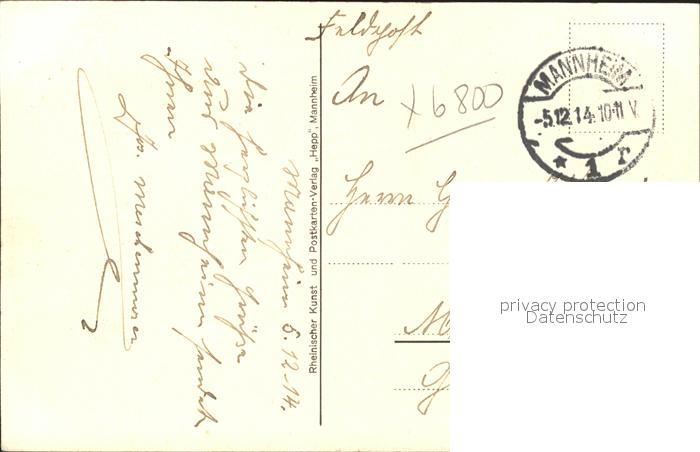 Feldpost
An
+6800
MANNHEIM
-5.12.14.10-11 V.
* 1 r
Herrn
Mannheim 5.12.14.
Die herzlichsten Grüße
aus Mannheim sendet
Ihnen
Rheinischer Kunst und Postkarten-Verlag „Hepp", Mannheim
privacy protection
Datenschutz